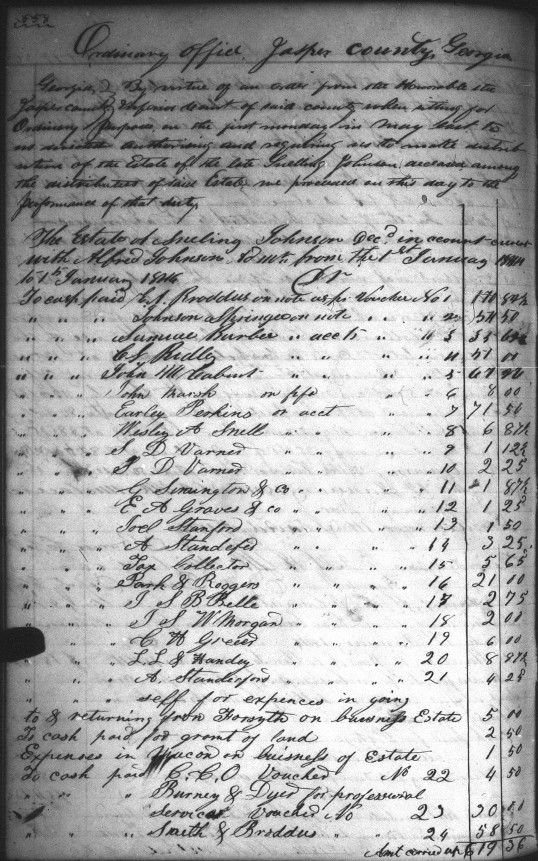 Ordinary office Jasper county, Georgia
Georgia, } By virtue of an order from the Honorable the
Jasper county } Inferior court of said county when sitting for
Ordinary purposes on the first monday in may last to
us directed authorising and requiring us to make distrib
ution of the Estate of the late Snelling Johnson deceased among
the distributees of said Estate, we proceed on this day to the
performance of that duty
The Estate of Sneling Johnson Decd in account current
with Alfred Johnson Admr from the 1st January 1844
to 1st January 1846 Cr
To cash paid Broddus on note as pr Voucher No 1 84½
" " Johnson & Springer on note " " 2 54 50
" " Samuel Barber " acct " " 3 35
" " Ridley " " " 4 51 00
" " John McCaburt " " " 5 67
" " John Marsh on pfd " 6 8 00
" " Earley Perkins or acct " 7 71 50
" " Wesley A Snell " " " 8 6 87½
" " S D Varned " " " 9 1 12½
" " S D Varned " " " 10 2 25
" " G Simington & co " " " 11 1 87½
" " E A Graves & co " " " 12 1 25
" " Joel Stanford " " " 13 1 50
" " A Standefed " " " 14 3 25
" " Tax Collector " " " 15 5 65
" " Park & Roggers " " " 16 21 00
" " J S B Belle " " " 17 2 75
" " J S W Morgan " " 18 2 00
" " C H Greer " " " 19 6 00
" " L L & Handey " " " 20 8 87½
" " A. Standeford " " " 21 4 25
" " self for expences in going
to & returning from Forsyth on buisness Estate 5 00
To cash paid for grant of land 2 50
Expenses in Macon on buisness of Estate 1 50
To cash paid C. C. O Voucher No 22 4 50
" " Burney & Dyer for professional
Services Voucher No 23 30 00
" " Smith & Broddus " 24 58 50
Amt carried up 619 36